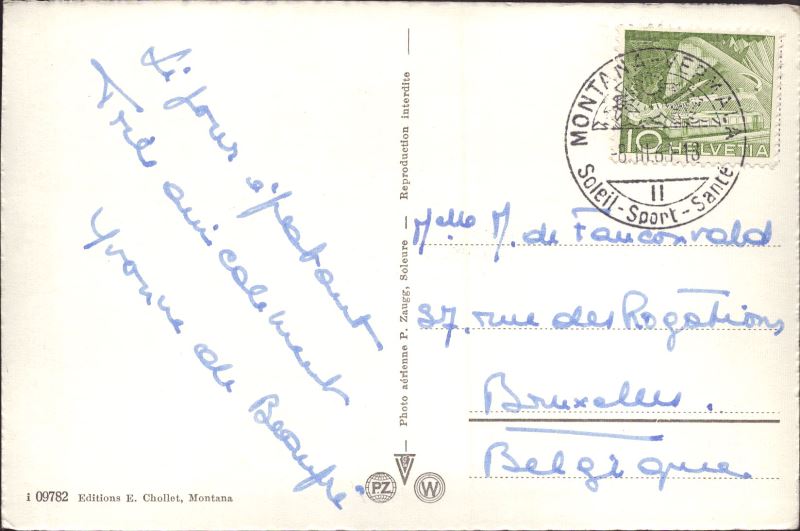 Séjour épatant
Très amicalement
Yvonne de Beaupré
Photo aérienne P. Zaugg, Soleure — Reproduction interdite
MONTANA-VERMALA
10 HELVETIA
II
Soleil-Sport-Santé
Melle M. de Fauconval
37, rue des Rogations
Bruxelles.
Belgique.
i 09782 Editions E. Chollet, Montana
PZ W